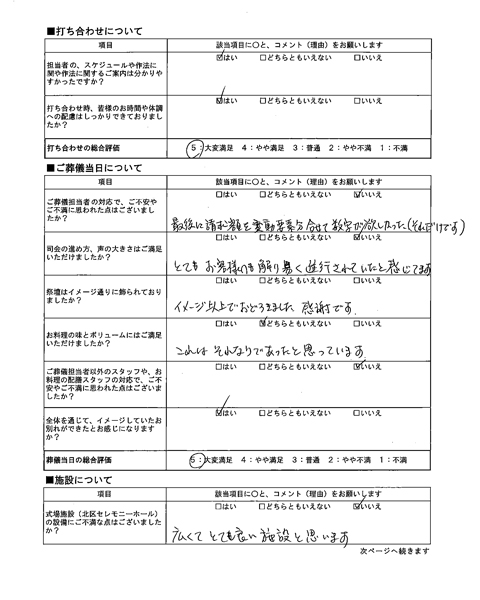 ■打ち合わせについて
項目
該当項目に○と、コメント（理由）をお願いします
担当者の、スケジュールや作法に
関や作法に関するご案内は分かりや
すかったですか？
☑はい □どちらともいえない □いいえ
打ち合わせ時、皆様のお時間や体調
への配慮はしっかりできておりまし
たか？
☑はい □どちらともいえない □いいえ
打ち合わせの総合評価
5：大変満足 4：やや満足 3：普通 2：やや不満 1：不満
■ご葬儀当日について
項目
該当項目に○と、コメント（理由）をお願いします
ご葬儀担当者の対応で、ご不安や
ご不満に思われた点はございまし
たか？
□はい □どちらともいえない ☑いいえ
最後に請求額を変動要素分合せて教えて欲しかった(それだけです)
司会の進め方、声の大きさはご満足
いただけましたか？
☑はい □どちらともいえない □いいえ
とても お客様にも解り易く進行されていたと感じてます
祭壇はイメージ通りに飾られており
ましたか？
☑はい □どちらともいえない □いいえ
イメージ以上でおどろきました 感謝です.
お料理の味とボリュームにはご満足
いただけましたか？
□はい ☑どちらともいえない □いいえ
これは それなりであったと思っています
ご葬儀担当者以外のスタッフや、お
料理の配膳スタッフの対応で、ご不
安やご不満に思われた点はございま
したか？
□はい □どちらともいえない ☑いいえ
全体を通じて、イメージしていたお
別れができたとお感じになります
か？
☑はい □どちらともいえない □いいえ
葬儀当日の総合評価
5：大変満足 4：やや満足 3：普通 2：やや不満 1：不満
■施設について
項目
該当項目に○と、コメント（理由）をお願いします
式場施設（北区セレモニーホール）
の設備にご不満な点はございました
か？
□はい □どちらともいえない ☑いいえ
広くて とても良い施設と思います
次ページへ続きます